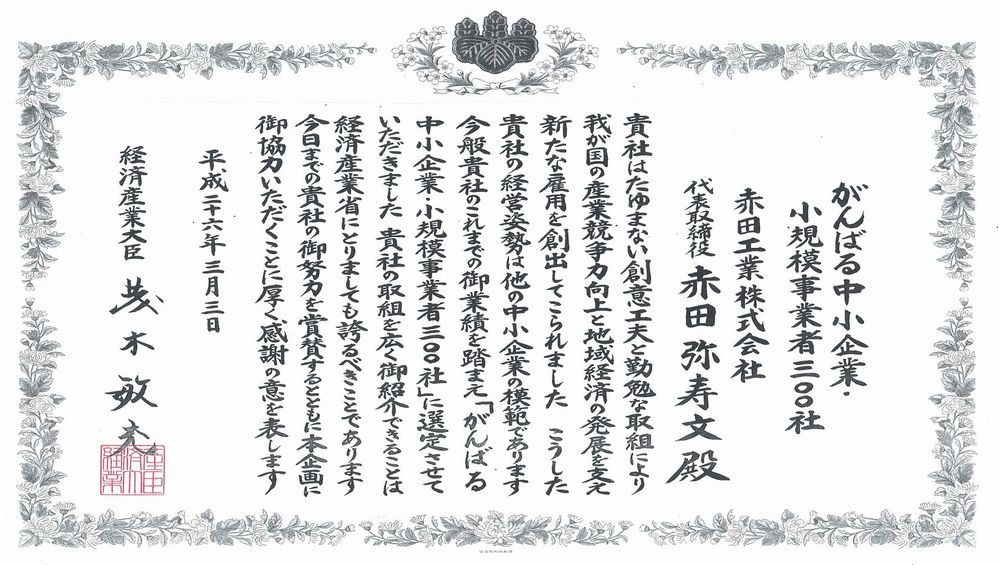 がんばる中小企業・
小規模事業者三〇〇社
赤田工業株式会社
代表取締役 赤田弥寿文殿
貴社はたゆまない創意工夫と勤勉な取組により
我が国の産業競争力向上と地域経済の発展を支え
新たな雇用を創出してこられました こうした
貴社の経営姿勢は他の中小企業の模範であります
今般貴社のこれまでの御業績を踏まえ「がんばる
中小企業・小規模事業者三〇〇社」に選定させて
いただきました 貴社の取組を広く御紹介できることは
経済産業省にとりましても誇るべきことであります
今日までの貴社の御努力を賞賛するとともに本企画に
御協力いただくことに厚く感謝の意を表します
平成二十六年三月三日
経済産業大臣 茂木敏充